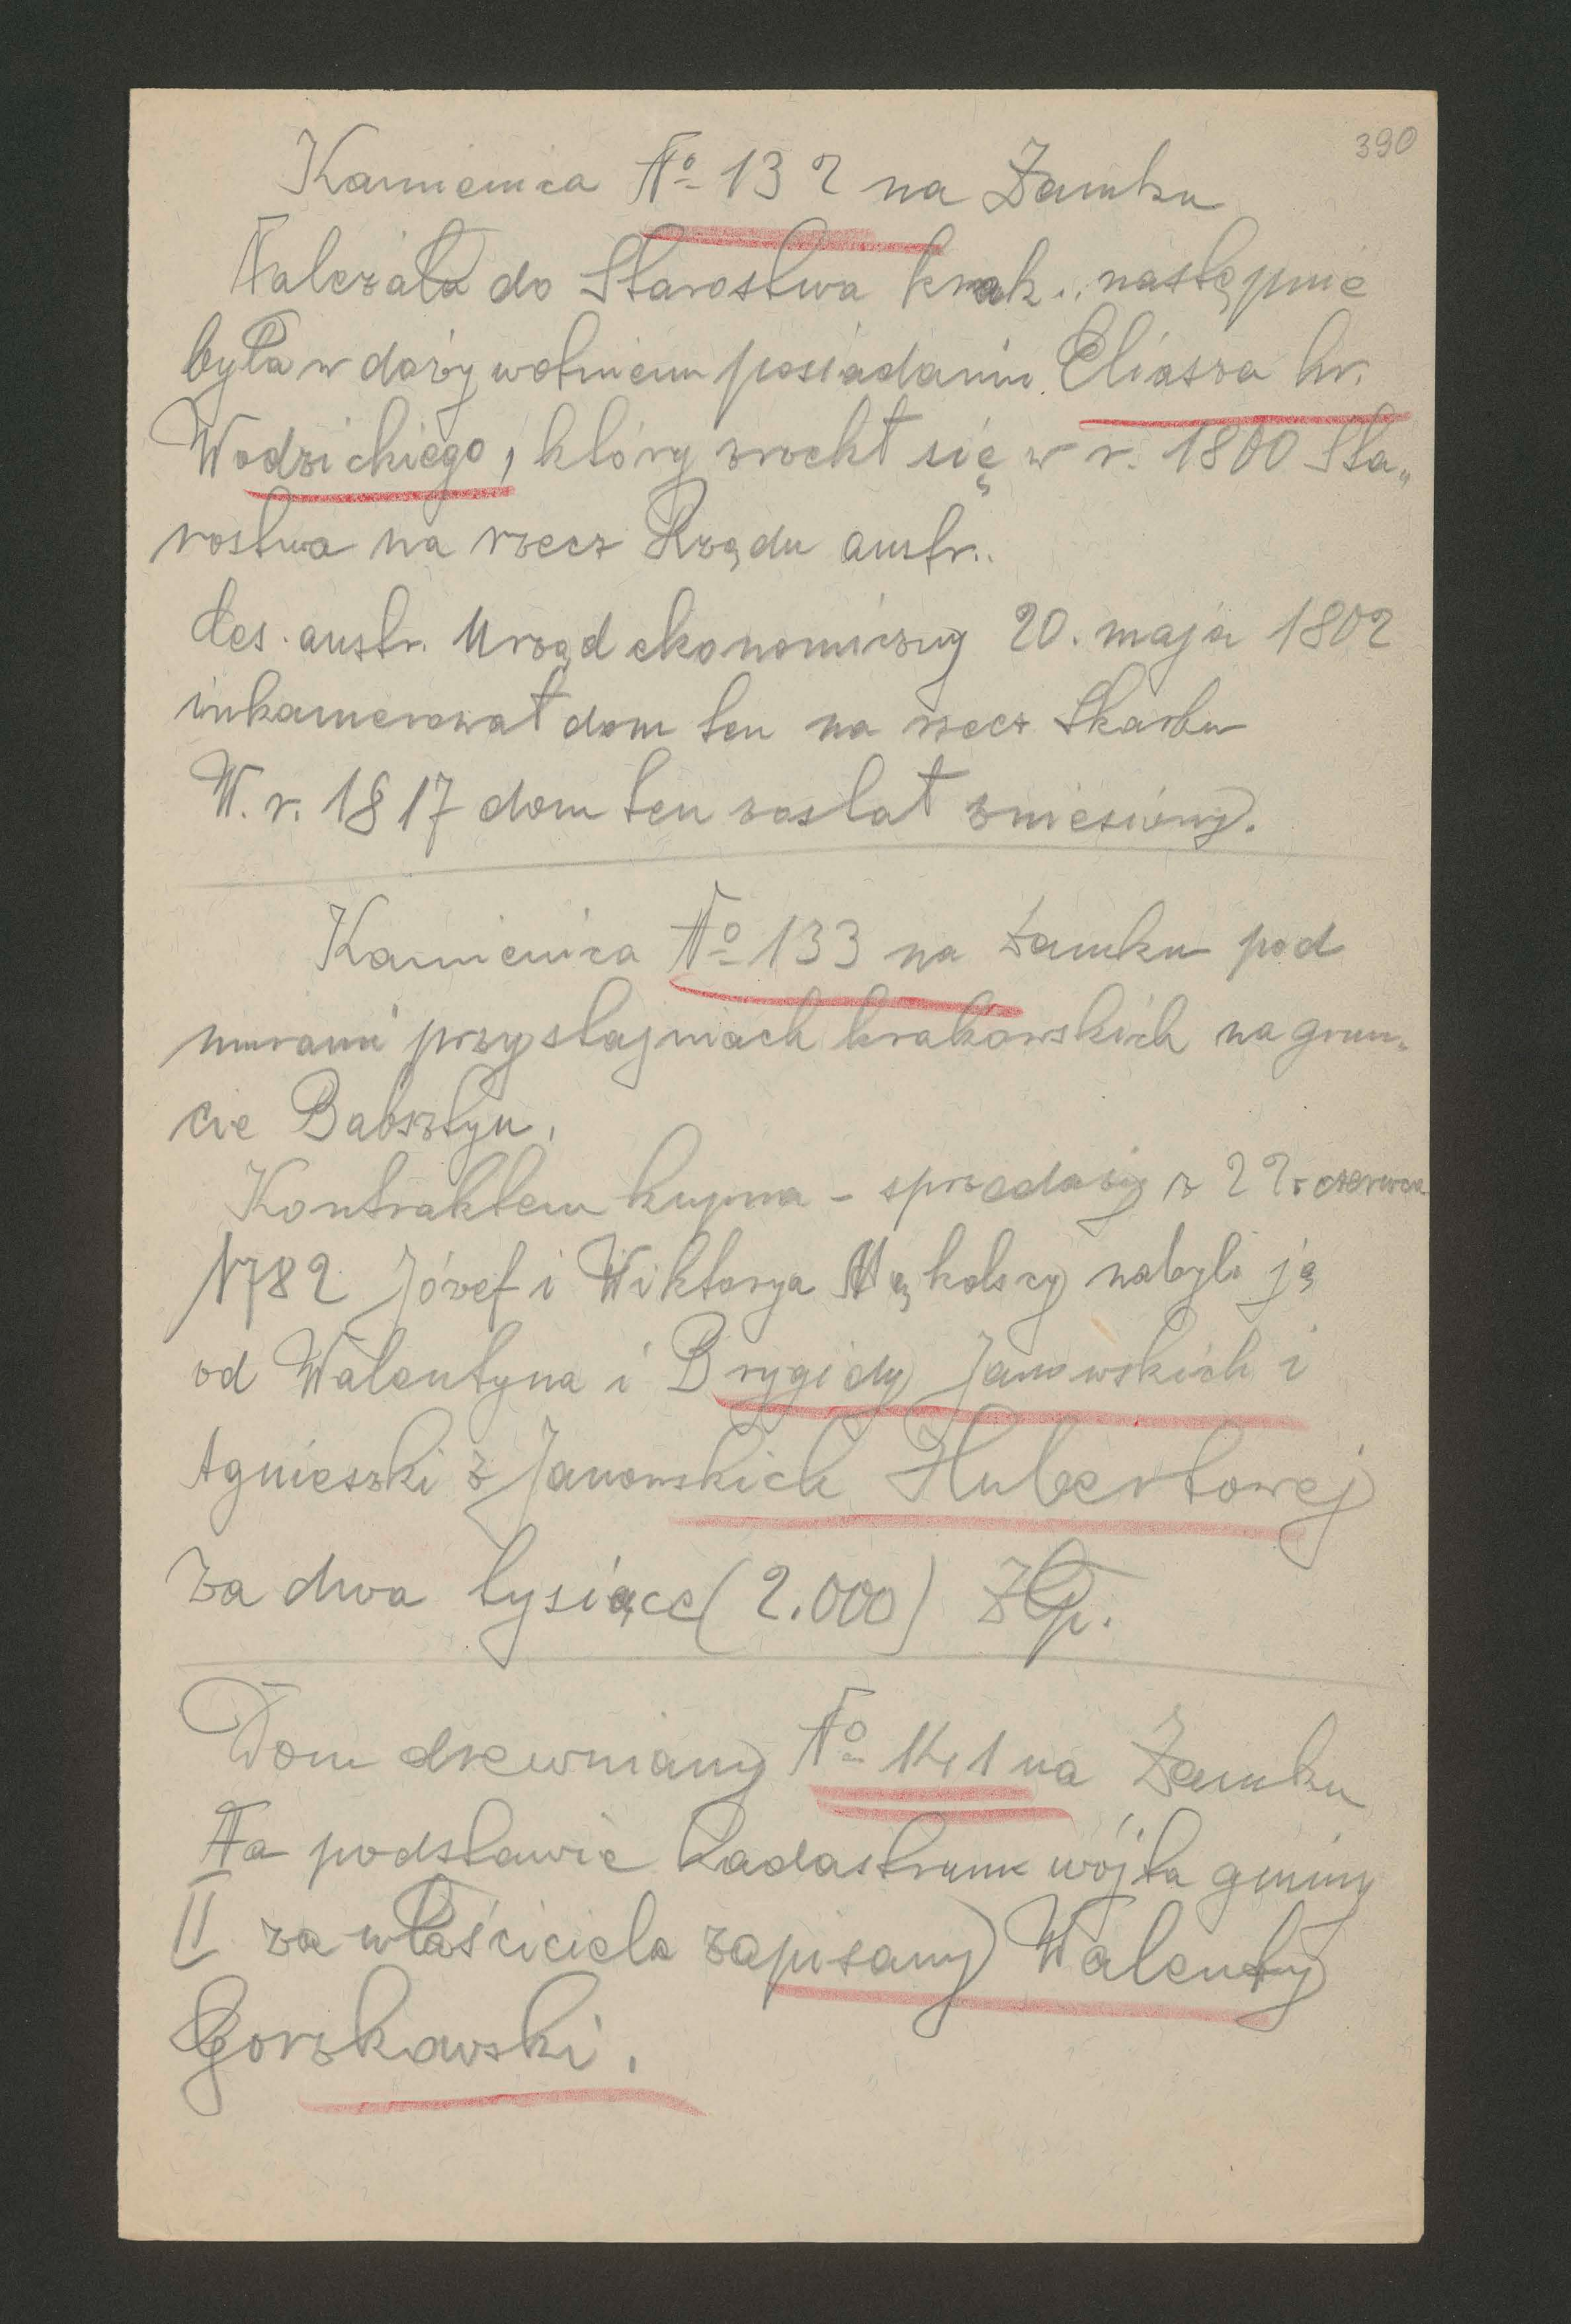 390
Kamienica No 132 na Zamku
Należała do Starostwa krak.. następnie
była w dożywotniem posiadaniu Eliasza hr.
Wodzickiego, który zrzekł się w r. 1800 Sta„
rostwa na rzecz Rządu austr..
Ces. austr. Urząd ekonomiczny 20. maja 1802
inkamerował dom ten na rzecz Skarbu
W. r. 1817 dom ten został zniesiony.
Kamienica No 133 na Zamku pod
murami przy stajniach krakowskich na grun„
cie Babsztyn.
Kontraktem kupna – sprzedaży z 22. czerwca
1782 Józef i Wiktorya nabyli ją
od Walentyna i Brygidy Janowskich i
Agnieszki z Janowskich Hubertowej
za dwa tysiące (2.000) Złp.
Dom drewniany No 141 na Zamku
Na podstawie Kadastrum wójta gminy
II za właściciela zapisany Walenty
Gorzkowski.